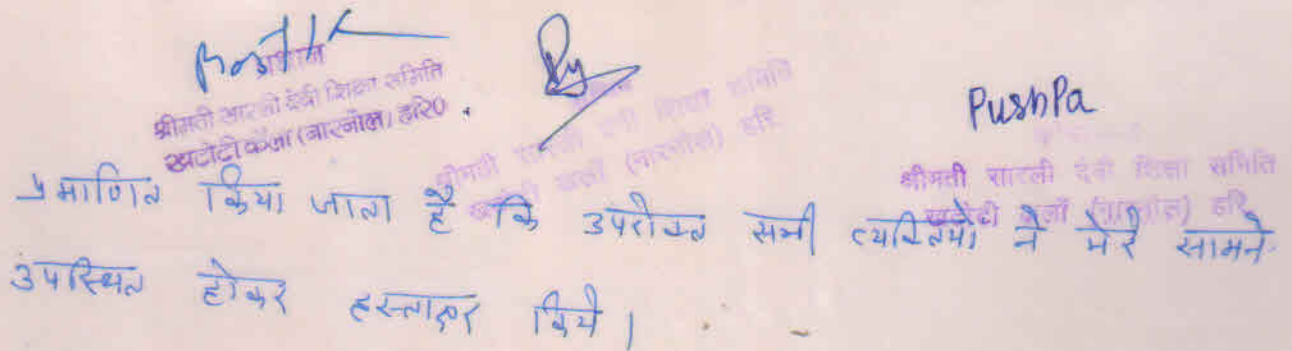 प्रधान
श्रीमती सारली देवी शिक्षा समिति
खटोटी कलां (नारनौल) हरि०
श्रीमती सारली देवी शिक्षा समिति
खटोटी कलाँ (नारनौल) हरि
PushPa
श्रीमती सारली देवी शिक्षा समिति
खटोटी कलाँ (नारनौल) हरि
प्रमाणित किया जाता है कि उपरोक्त सभी व्यक्तियों ने मेरे सामने
उपस्थित होकर हस्ताक्षर किये।